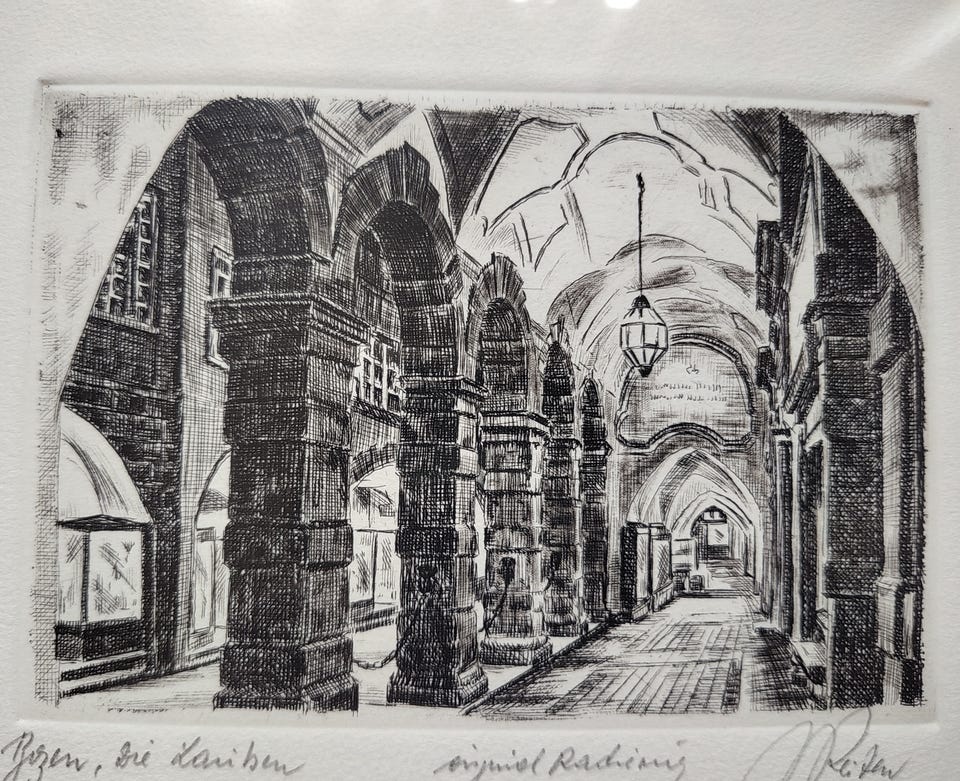 Bozen, Die Lauben original Radierung